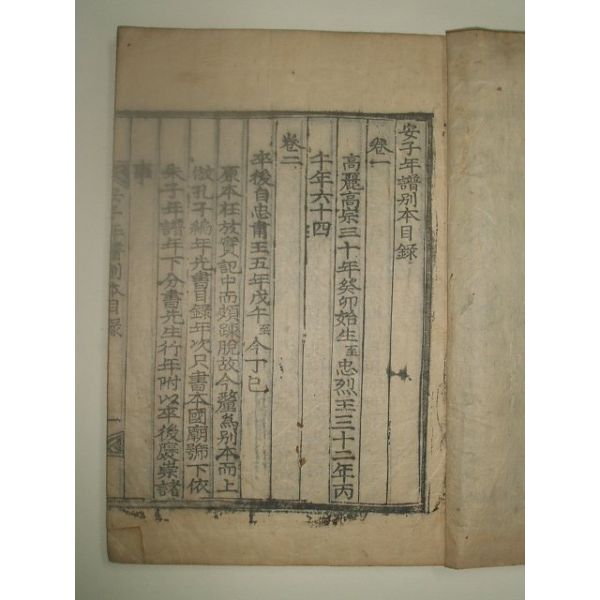 安子年譜別本目錄
卷一
高麗高宗三十年癸卯始生至忠烈王三十二年丙
午年六十四
卷二
卒後自忠肅王五年戊午至今丁巳
原本在放實記中而頗踈脫故今釐爲別本而上
倣孔子編年先書目錄年次只書本國廟號下依
朱子年譜年下分書先生行年附以卒後褒崇諸
事
安子年譜別本目錄
一